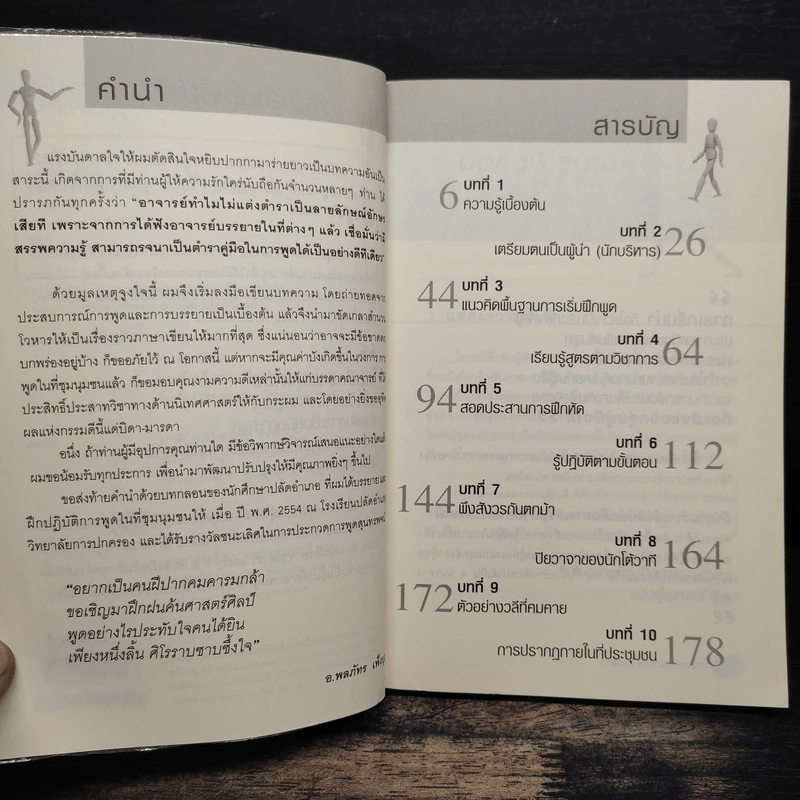 คำนำ
แรงบันดาลใจให้ผมตัดสินใจหยิบปากกามาร่ายยาวเป็นบทความอันเป็น
สาระนี้ เกิดจากการที่มีท่านผู้ให้ความรักใคร่นับถือกันจำนวนหลายๆ ท่าน ได้
ปรารภกันทุกครั้งว่า "อาจารย์ทำไมไม่แต่งตำราเป็นลายลักษณ์อักษร
เสียที เพราะจากการได้ฟังอาจารย์บรรยายในที่ต่างๆ แล้ว เชื่อมั่นว่า
สรรพความรู้ สามารถรจนาเป็นตำราคู่มือในการพูดได้เป็นอย่างดีทีเดียว
ด้วยมูลเหตุจูงใจนี้ ผมจึงเริ่มลงมือเขียนบทความ โดยถ่ายทอดจาก
ประสบการณ์การพูดและการบรรยายเป็นเบื้องต้น แล้วจึงนำมาขัดเกลาสำนวน
โวหารให้เป็นเรื่องราวภาษาเขียนให้มากที่สุด ซึ่งแน่นอนว่าอาจจะมีข้อขาดตก
บกพร่องอยู่บ้าง ก็ขออภัยไว้ ณ โอกาสนี้ แต่หากจะมีคุณค่าบังเกิดขึ้นในวงการ
พูดในที่ชุมนุมชนแล้ว ก็ขอมอบคุณงามความดีเหล่านั้นให้แก่บรรดาคณาจารย์ ที่
ประสิทธิ์ประสาทวิชาทางด้านนิเทศศาสตร์ให้กับกระผม และโดยอย่างยิ่งขอ
ผลแห่งกรรมดีนี้แด่บิดา-มารดา
อนึ่ง ถ้าท่านผู้มีอุปการคุณท่านใด มีข้อวิพากษ์วิจารณ์เสนอแนะอย่างใด
ผมขอน้อมรับทุกประการ เพื่อนำมาพัฒนาปรับปรุงให้มีคุณภาพยิ่งๆ ขึ้นไป
ขอส่งท้ายคำนำด้วยบทกลอนของนักศึกษาปลัดอำเภอ ที่ผมได้บรรยาย และ
ฝึกปฏิบัติการพูดในที่ชุมนุมชนให้ เมื่อ ปี พ.ศ. 2554 ณ โรงเรียนปลัดอำเภอ
วิทยาลัยการปกครอง และได้รับรางวัลชนะเลิศในการประกวดการพูดสุนทรพจน์
"อยากเป็นคนฝีปากคมคารมกล้า
ขอเชิญมาฝึกฝนค้นศาสตร์ศิลป์
พูดอย่างไรประทับใจคนได้ยิน
เพียงหนึ่งลิ้น ศิโรราบซาบซึ้งใจ"
อ.พลภัทร
สารบัญ
6 บทที่ 1
ความรู้เบื้องต้น
บทที่ 2
เตรียมตนเป็นผู้นำ (นักบริหาร) 26
44 บทที่ 3
แนวคิดพื้นฐานการเริ่มฝึกพูด
บทที่ 4
เรียนรู้สูตรตามวิชาการ 64
94 บทที่ 5
สอดประสานการฝึกหัด
บทที่ 6
รู้ปฏิบัติตามขั้นตอน 112
144 บทที่ 7
พึงสังวรกันตกม้า
บทที่ 8
ปิยวาจาของนักโต้วาที 164
172 บทที่ 9
ตัวอย่างวลีที่คมคาย
บทที่ 10
การปรากฏกายในที่ประชุมชน 178